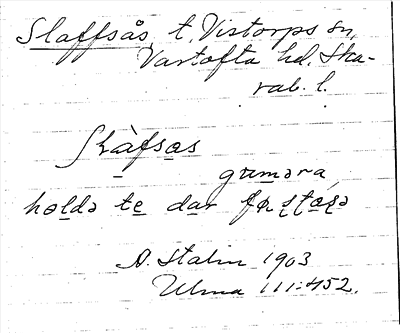 Slaffsås, t. Vistorps sn,
Vartofta hd. Ska-
rab. l.
slàfsas
grᴀmərа
holdə te dar
A. Stalin 1903
Ulma 111:452.